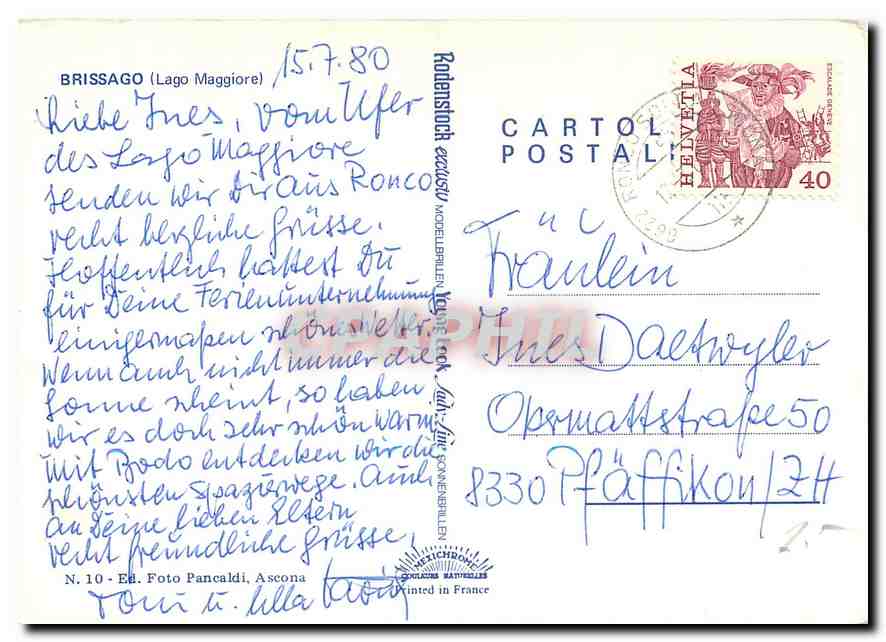 BRISSAGO (Lago Maggiore)
15.7.80
Liebe Ines, vom Ufer
des Lago Maggiore
senden wir Dir aus Ronco
recht herzliche Grüsse.
Hoffentlich hattest Du
für Deine Ferienunternehmung
einigermaßen schönes Wetter.
Wenn auch nicht immer die
Sonne scheint, so haben
wir es doch sehr schön warm.
Mit Bodo entdecken wir die
schönsten Spazierwege. Auch
an Deine lieben Eltern
recht freundliche Grüsse,
N. 10 - Ed. Foto Pancaldi, Ascona
Rodenstock exclusiv MODELLBRILLEN Young Look Lady Line SONNENBRILLEN
MEXICHROME
COULEURS NATURELLES
Printed in France
CARTOL
POSTALI
HELVETIA
ESCALADE GENÈVE
40
6622 RONCO
Fräulein
Ines Daetwyler
Obermattstraße 50
8330 Pfäffikon/ZH
1.-
CPAPHIL